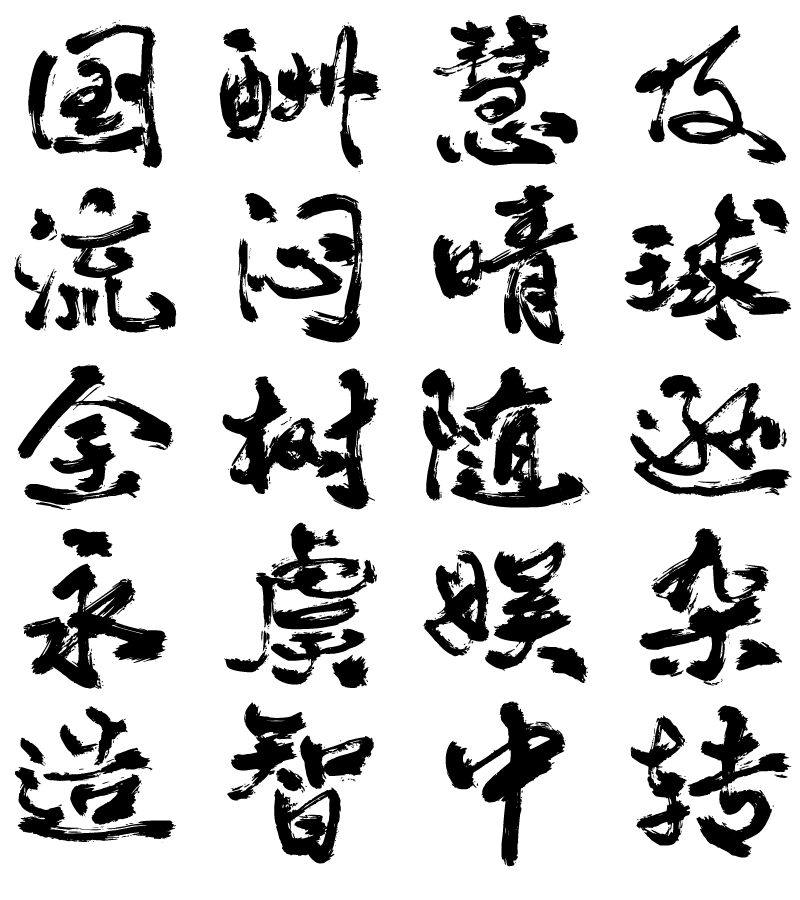 国酬慧
流闷晴球
金树随逊
永虞娱杂
造智中转